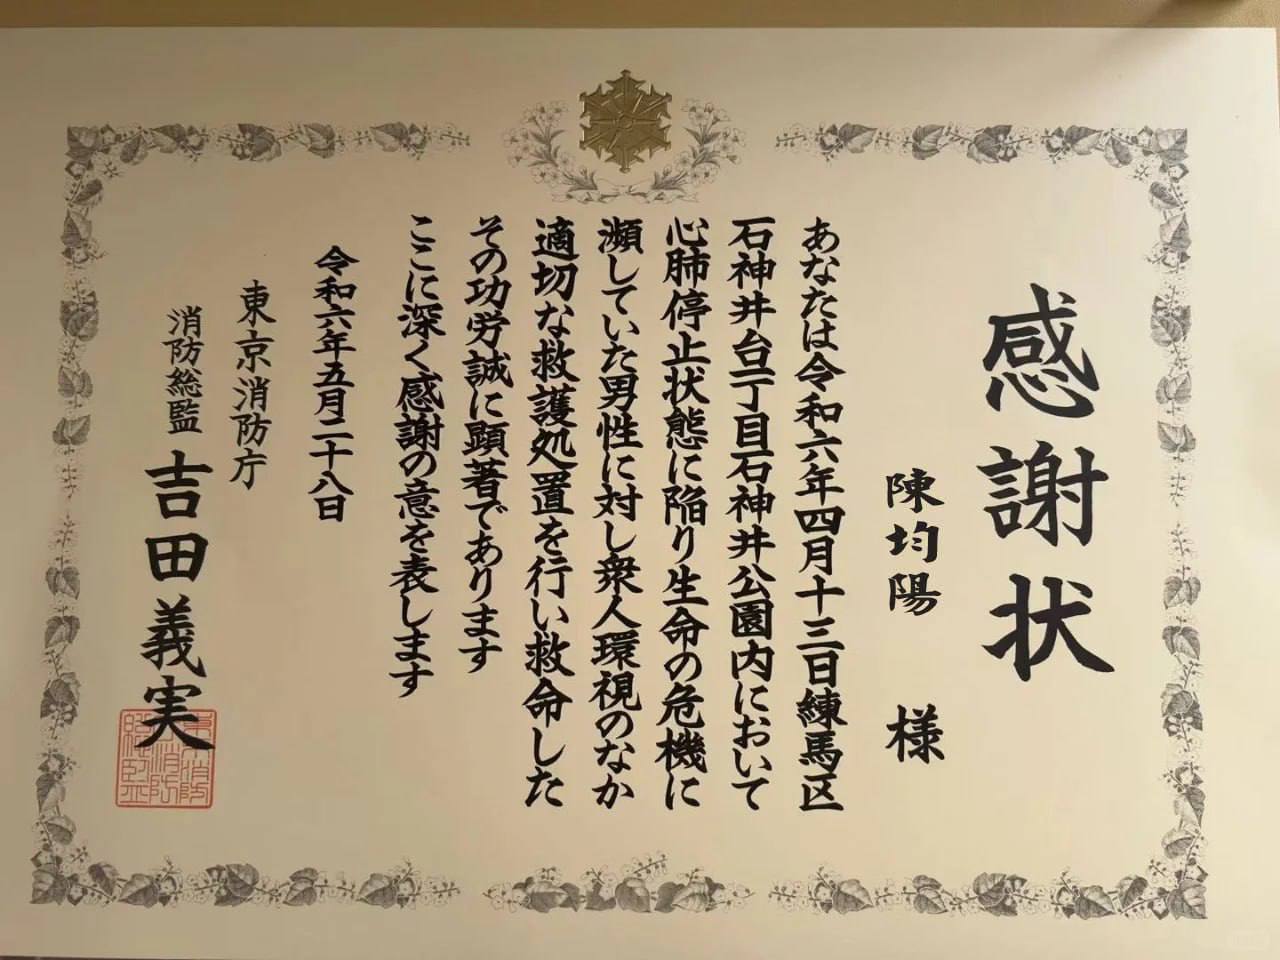 感謝状
陳均陽 様
あなたは令和六年四月十三日練馬区
石神井台一丁目石神井公園内において
心肺停止状態に陥り生命の危機に
瀕していた男性に対し衆人環視のなか
適切な救護処置を行い救命した
その功労誠に顕著であります
ここに深く感謝の意を表します
令和六年五月二十八日
東京消防庁
消防総監 吉田義実